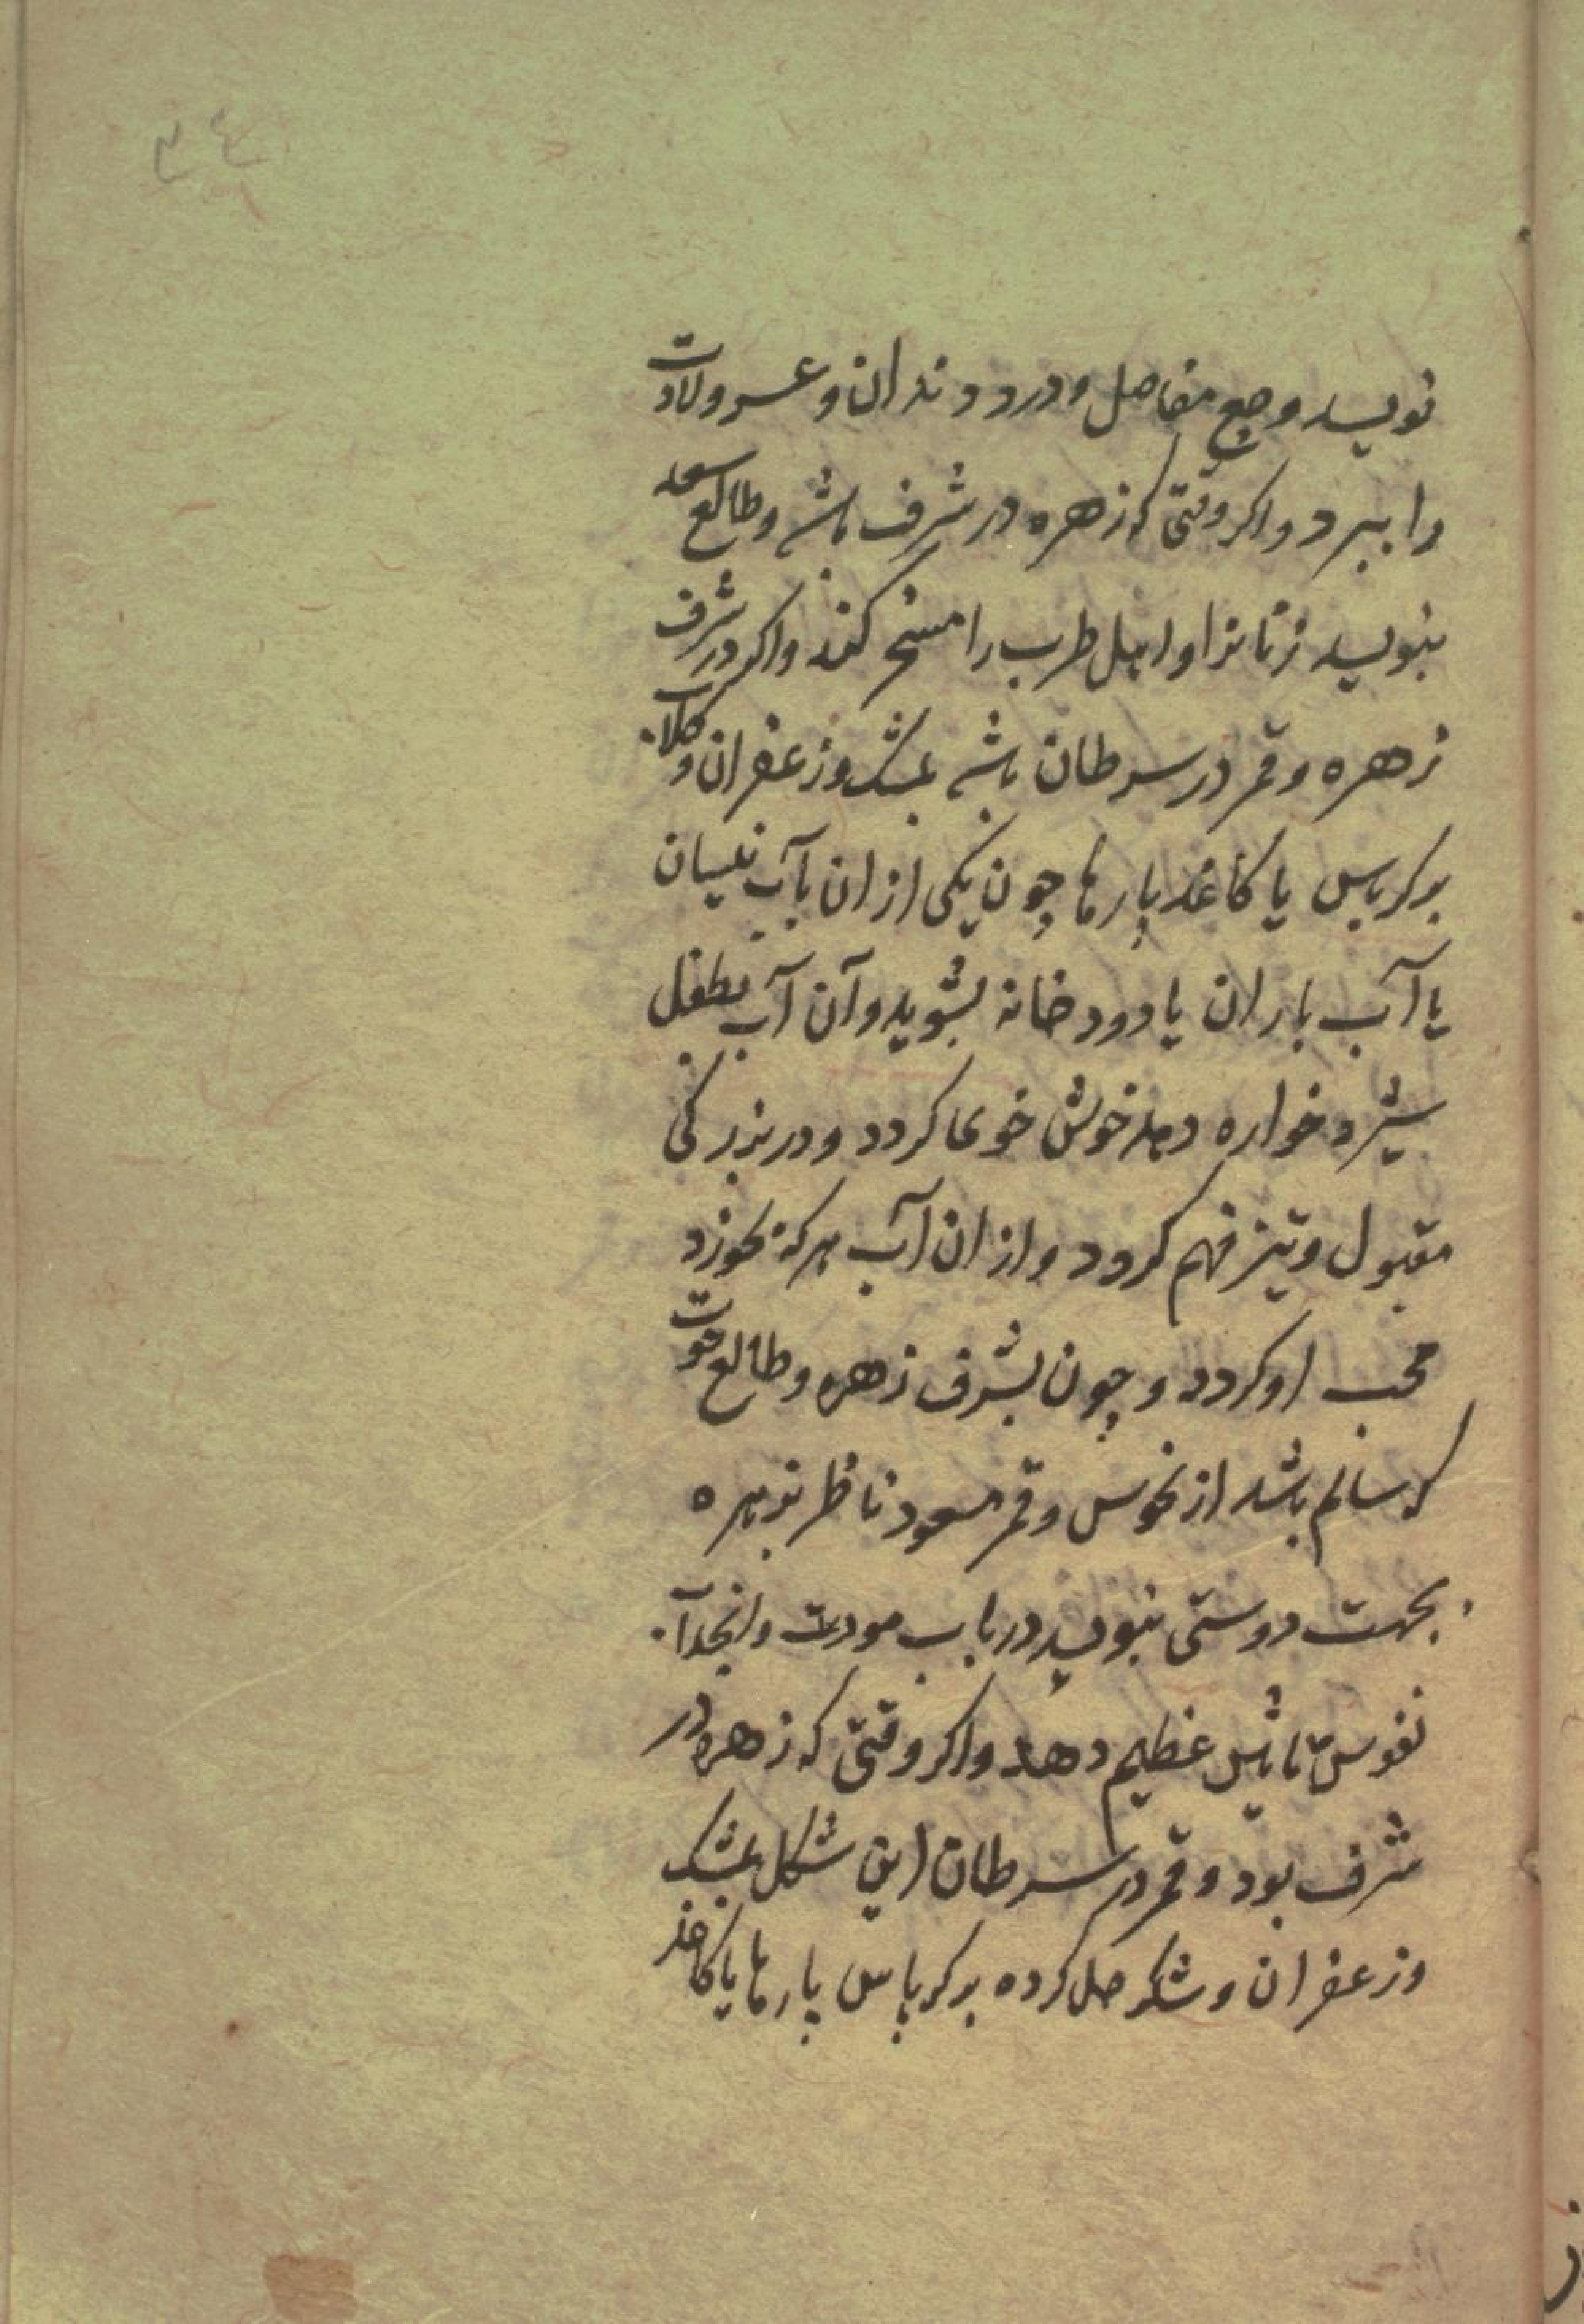 ٣٤
نویسد وجع مفاصل و درد دندان و عسر ولادت
را ببرد و اکر وقتی که زهره در شرف باشد و طالع سعد
بنویسد زنانرا و اهل طرب را مسخر کند و اکر در شرف
زهره و قمر در سرطان باشد بمشک و زعفران و کلاب
بر کرباس یا کاغذ پارها چون یکی از ان بآب نیسان
یا آب باران یا رودخانه بشوید و آن آب بطفل
شیر خواره دهد خوش خوی کردد و در بزرکی
مقبول و تیز فهم کردد و از ان آب هرکه بخورد
محب او کردد و چون بشرف زهره و طالع حوت
که سالم باشد از نحوس و قمر مسعود ناظر بزهره
بجهت دوستی بنویسد در باب مودت و انجذاب
نفوس تاثیر عظیم دهد و اکر وقتی که زهره در
شرف بود و قمر در سرطان این شکل بمشک
و زعفران و شکر حل کرده بر کرباس پارها یا کاغذ